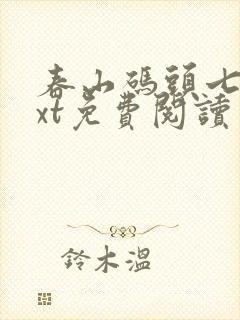 春山碼頭七
xt免費閱讀
鈴木溫